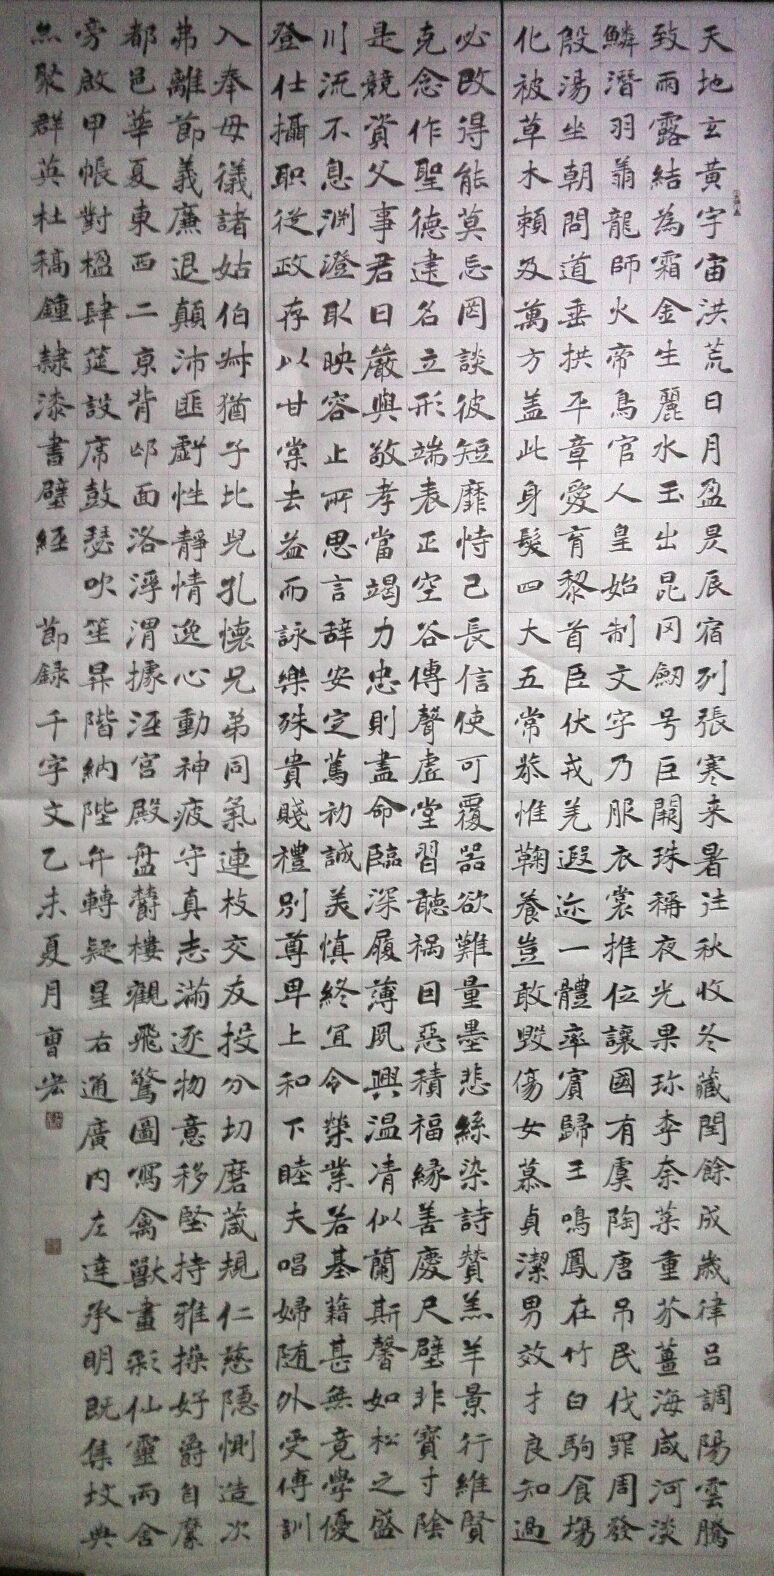 天地玄黃宇宙洪荒日月盈昃辰宿列張寒来暑往秋收冬藏閏餘成歲律呂調陽雲騰
致雨露結為霜金生麗水玉出昆冈劒号巨闕珠稱夜光果珍李柰菜重芥薑海咸河淡
鱗潛羽翔龍師火帝鳥官人皇始制文字乃服衣裳推位讓國有虞陶唐吊民伐罪周發
殷湯坐朝問道垂拱平章愛育黎首臣伏戎羌遐迩一體率賓歸王鳴鳳在竹白駒食場
化被草木賴及萬方盖此身髮四大五常恭惟鞠養豈敢毀傷女慕貞潔男效才良知過
必改得能莫忘罔談彼短靡恃己長信使可覆器欲難量墨悲絲染詩贊羔羊景行維賢
克念作聖德建名立形端表正空谷傳聲虛堂習聽禍因惡積福緣善慶尺璧非寶寸陰
是競資父事君曰嚴與敬孝當竭力忠則盡命臨深履薄夙興温凊似蘭斯馨如松之盛
川流不息渊澄取映容止所思言辞安定篤初誠美慎終宜令榮業若基籍甚無竟學優
登仕攝职從政存以甘棠去益而詠樂殊貴賤禮别尊卑上和下睦夫唱婦随外受傅訓
入奉母儀諸姑伯叔猶子比兒孔懷兄弟同氣連枝交友投分切磨箴規仁慈隱惻造次
弗離節義廉退顛沛匪虧性靜情逸心動神疲守真志滿逐物意移堅持雅操好爵自縻
都邑華夏東西二京背邙面洛浮渭據涇宮殿盘欝樓觀飛驚圖寫禽獸畫彩仙靈丙舍
旁啟甲帳對楹肆筵設席鼓瑟吹笙昇階納陛弁轉疑星右通廣内左達承明既集坟典
亦聚群英杜稿鍾隸漆書壁經 節録千字文乙未夏月曹宏